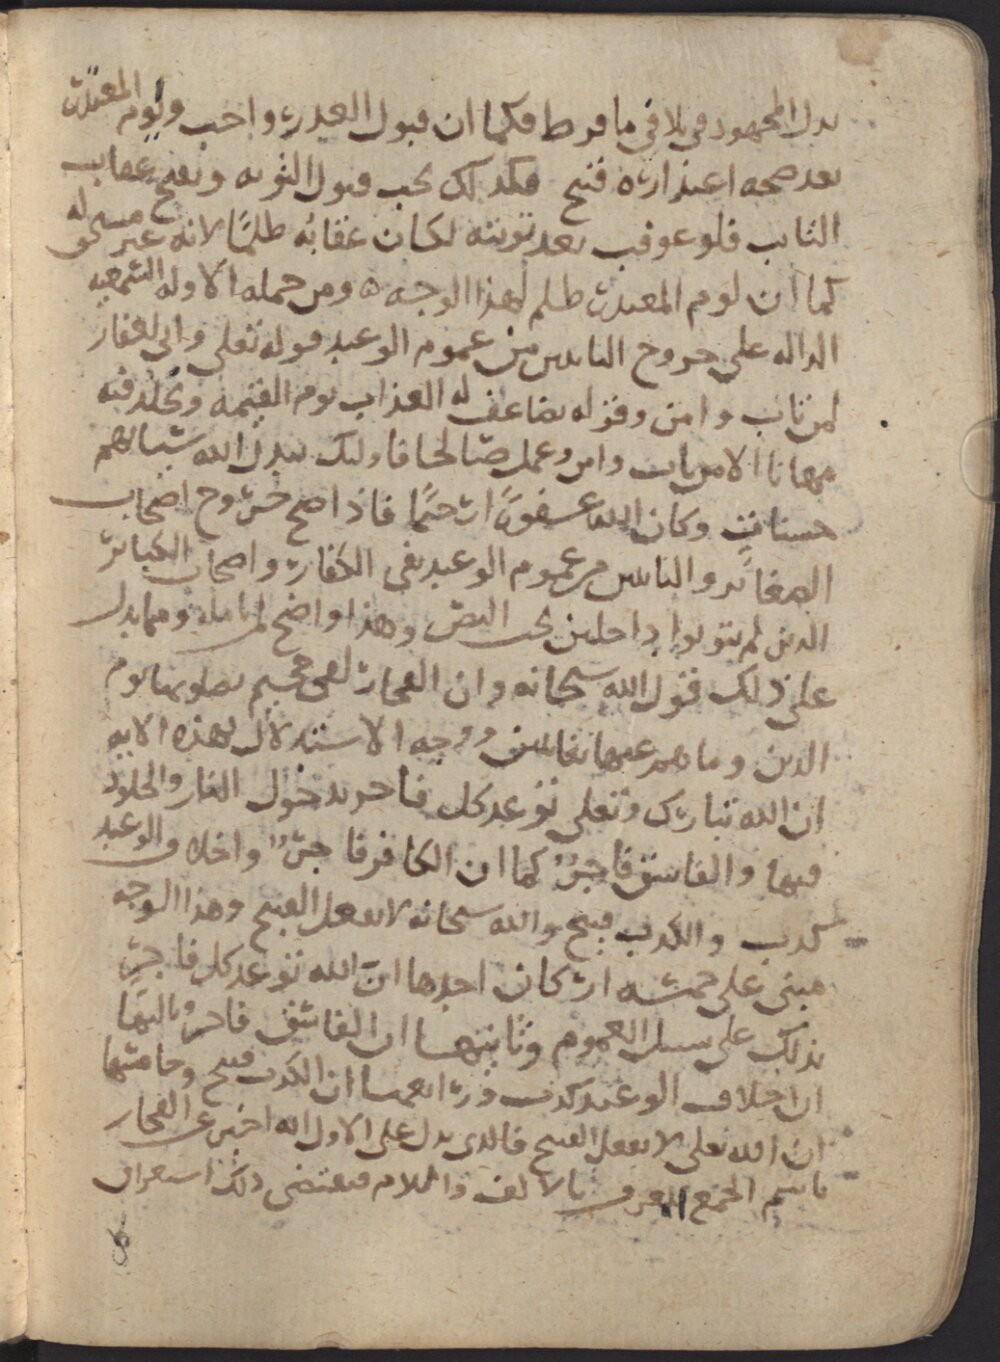 بذل المجهود في تلافي ما فرط فكما ان قبول العذر واجب ولوم المعتذر
بعد صحه اعتذاره قبيح فكذلك يجب قبول التوبه ويقبح عقاب
التايب فلو عوقب بعد توبته لكان عقابه ظلمًا لانه غير مستحق له
كما ان لوم المعتذر ظلم لهذا الوجه ه ومن جمله الادله السمعيه
الداله على خروج التايبين من عموم الوعيد قوله تعلى واني لغفار
لمن تاب وامن وقوله يضاعف له العذاب يوم القيمه ويخلد فيه
مهانا الا من تاب وامن وعمل صالحا فاولئك يبدل الله سيئاتهم
حسنات وكان الله غفورًا رحيمًا فاذا صح خروج اصحاب
الصغائر والتايبين من عموم الوعيد بقي الكفار واصحاب الكبائر
الذين لم يتوبوا داخلين تحت النص وهذا واضح لمن تامله ومما يدل
على ذلك قول الله سبحانه وان الفجار لفي جحيم يصلونها يوم
الدين وما هم عنها بغائبين ووجه الاستدلال بهذه الايه
ان الله تبارك وتعلى توعد كل فاجر بدخول النار والخلود
فيها والفاسق فاجر كما ان الكافر فاجر واخلاف الوعيد
كذب والكذب قبيح والله سبحانه لا يفعل القبيح وهذا الوجه
مبني على خمسه اركان احدها ان الله توعد كل فاجر
بذلك على سبيل العموم وثانيها ان الفاسق فاجر وثالثها
ان اخلاف الوعيد كذب ورابعها ان الكذب قبيح وخامسها
ان الله تعلى لا يفعل القبيح فالذي يدل على الاول انه اخبر عن الفجار
باسم الجمع المعرف بالالف واللام فيقتضي ذلك استغراق